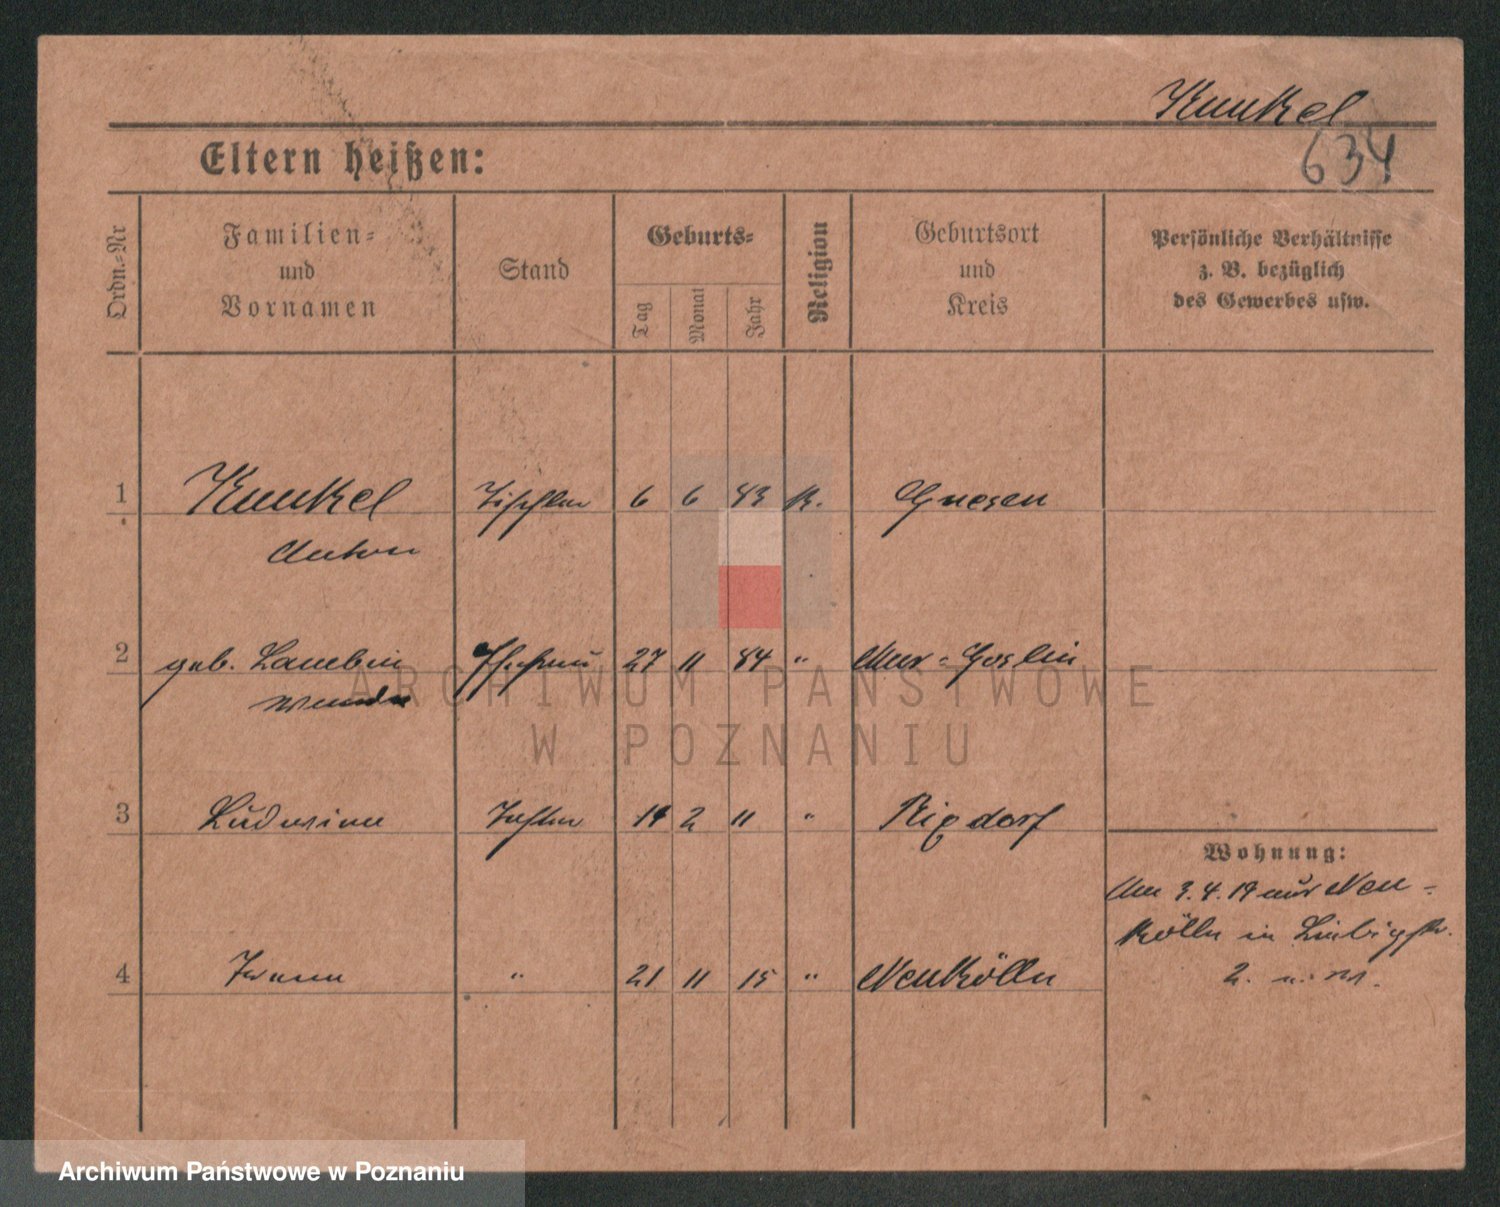 Kunkel
634
Eltern heißen:
Ordn.-Nr
Familien-
und
Vornamen
Stand
Geburts-
Tag
Monat
Jahr
Religion
Geburtsort
und
Kreis
Persönliche Verhältnisse
z. B. bezüglich
des Gewerbes usw.
1 Kunkel Tischler 6 6 83 K. Gnesen
Anton
2 geb. Ehefrau 27 11 84 " Mur-Goslin
3 Ludwina Tochter 19 2 11 " Rixdorf
Wohnung:
Am 3.4.19 aus Neu-
kölln in
2.
4 " 21 11 15 " Neukölln
ARCHIWUM PAŃSTWOWE
W POZNANIU
Archiwum Państwowe w Poznaniu